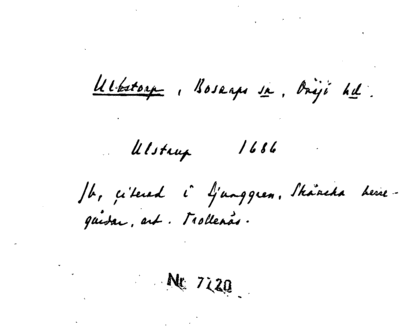 Ulstorp, Bosarps sn, Onsjö hd.
Ulstrup 1686
Jb, citerad i Ljunggren, Skånska herre-
gårdar, art. Trollenäs.
Nr 7720